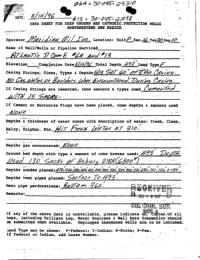 #6A = 30-045-29310
5/10/96 #13 - 30-045-21098
DATA SHEET FOR DEEP GROUND BED CATHODIC PROTECTION WELLS
NORTHWESTERN NEW MEXICO
Operator Meridian Oil Inc. Location: Unit
Name of Well/Wells or Pipeline Serviced
Atlantic D Com E #6A and #13
Elevation Completion Date 5/10/96 Total Depth 493 Land Type F
Casing Strings, Sizes, Types & Depths
No Gas, Water, or Boulders Were Encountered During Casing.
If Casing Strings are cemented, show amounts & types used Cemented
With 15 Sacks.
If Cement or Bentonite Plugs have been placed, show depths & amounts used
None
Depths & thickness of water zones with description of water: Fresh, Clear,
Salty, Sulphur, Etc. Hit Fresh Water At 310.
Depths gas encountered: None
Ground bed depth with type & amount of coke breeze used: 493 Depth
Used 130 Sacks of Asbury
Depths anodes placed:
Depths vent pipes placed: Surface To 493.
Vent pipe perforations: Bottom 360.
Remarks:
If any of the above data is unavailable, please indicate so. Copies of all
logs, including Drillers Log, Water Analyses & Well Bore Schematics should
be submitted when available. Unplugged abandoned wells are to be included.
Land Type may be shown: F-Federal; I-Indian; S-State; P-Fee.
If Federal or Indian, add Lease Number.